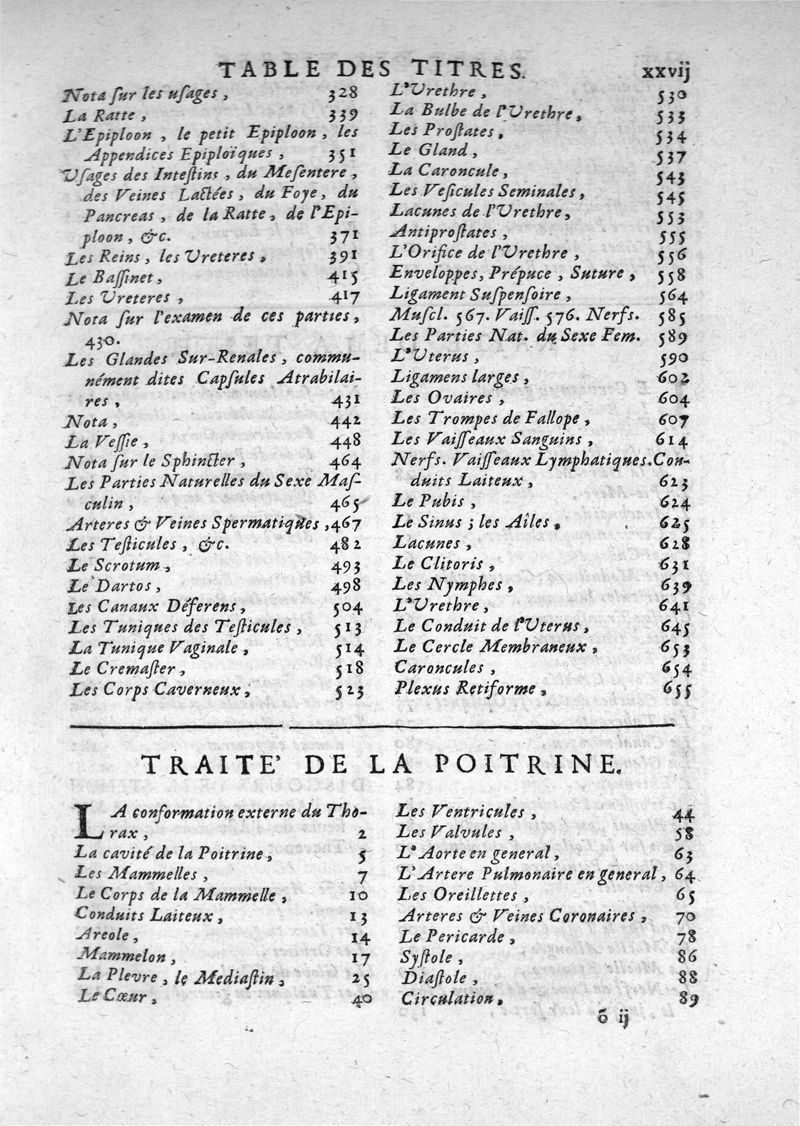 TABLE DES TITRES. xxvij
Nota ſur les uſages, 328
La Ratte, 339
L'Epiploon, le petit Epiploon, les
Appendices Epiploïques, 351
Uſages des Inteſtins, du Meſentere,
des Veines Lactées, du Foye, du
Pancreas, de la Ratte, de l'Epi-
ploon, &c. 371
Les Reins, les Ureteres, 391
Le Baſſinet, 415
Les Ureteres, 417
Nota ſur l'examen de ces parties,
430.
Les Glandes Sur-Renales, commu-
nément dites Capſules Atrabilai-
res, 431
Nota, 442
La Veſſie, 448
Nota ſur le Sphincter, 464
Les Parties Naturelles du Sexe Maſ-
culin, 465
Arteres & Veines Spermatiques, 467
Les Teſticules, &c. 482
Le Scrotum, 493
Le Dartos, 498
Les Canaux Déferens, 504
Les Tuniques des Teſticules, 513
La Tunique Vaginale, 514
Le Cremaſter, 518
Les Corps Caverneux, 523
L'Urethre, 530
La Bulbe de l'Urethre, 533
Les Proſtates, 534
Le Gland, 537
La Caroncule, 543
Les Veſicules Seminales, 545
Lacunes de l'Urethre, 553
Antiproſtates, 555
L'Orifice de l'Urethre, 556
Enveloppes, Prépuce, Suture, 558
Ligament Suſpenſoire, 564
Muſcl. 567. Vaiſſ. 576. Nerfs. 585
Les Parties Nat. du Sexe Fem. 589
L'Uterus, 590
Ligamens larges, 602
Les Ovaires, 604
Les Trompes de Fallope, 607
Les Vaiſſeaux Sanguins, 614
Nerfs. Vaiſſeaux Lymphatiques. Con-
duits Laiteux, 623
Le Pubis, 624
Le Sinus; les Aîles, 625
Lacunes, 628
Le Clitoris, 631
Les Nymphes, 639
L'Urethre, 641
Le Conduit de l'Uterus, 645
Le Cercle Membraneux, 653
Caroncules, 654
Plexus Retiforme, 655
TRAITE' DE LA POITRINE.
LA conformation externe du Tho-
rax, 2
La cavité de la Poitrine, 5
Les Mammelles, 7
Le Corps de la Mammelle, 10
Conduits Laiteux, 13
Areole, 14
Mammelon, 17
La Plevre, le Mediaſtin, 25
Le Cœur, 40
Les Ventricules, 44
Les Valvules, 58
L'Aorte en general, 63
L'Artere Pulmonaire en general, 64
Les Oreillettes, 65
Arteres & Veines Coronaires, 70
Le Pericarde, 78
Syſtole, 86
Diaſtole, 88
Circulation, 89
õ ij